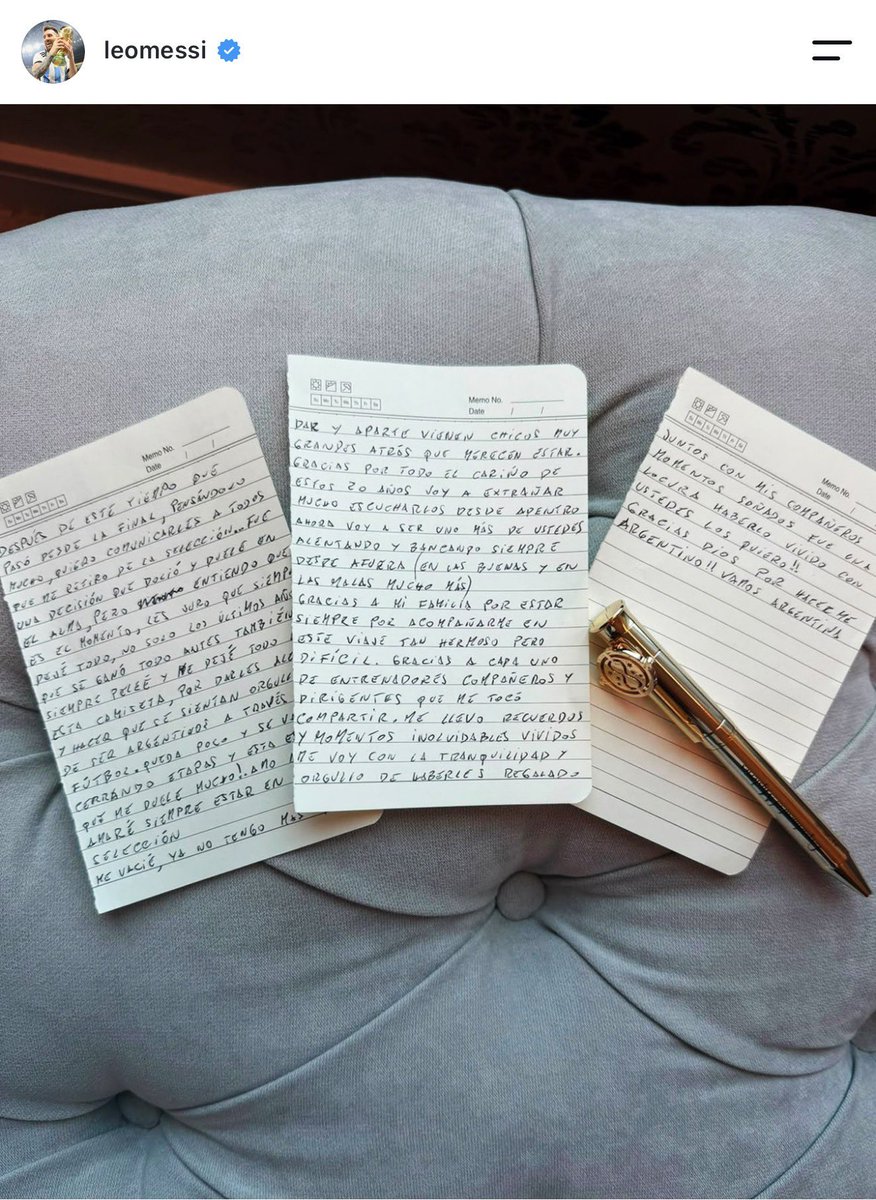 leomessi
Memo No.
Date / /
DESPUES DE ESTE TIEMPO QUE
PASÓ DESDE LA FINAL, PENSÁNDOLO
MUCHO, QUIERO COMUNICARLES A TODOS
QUE ME RETIRO DE LA SELECCIÓN.. FUE
UNA DECISIÓN QUE DOLIÓ Y DUELE EN
EL ALMA, PERO ENTIENDO QUE
ES EL MOMENTO, LES JURO QUE SIEMP
DEJÉ TODO, NO SOLO LOS ÚLTIMOS AÑOS
QUE SE GANÓ TODO ANTES TAMBIÉN
SIEMPRE PELEÉ Y ME DEJÉ TODO
ESTA CAMISETA, POR DARLES ALE
Y HACER QUE SE SIENTAN ORGULL
DE SER ARGENTINOS A TRAVÉS
FÚTBOL. QUEDA POCO Y SE VA
CERRANDO ETAPAS Y ESTA E
QUE ME DUELE MUCHO! AMO
AMARÉ SIEMPRE ESTAR EN
SELECCIÓN
ME VACIÉ, YA NO TENGO MÁS
Memo No.
Date / /
DAR Y APARTE VIENEN CHICOS MUY
GRANDES ATRÁS QUE MERECEN ESTAR.
GRACIAS POR TODO EL CARIÑO DE
ESTOS 20 AÑOS VOY A EXTRAÑAR
MUCHO ESCUCHARLOS DESDE ADENTRO
AHORA VOY A SER UNO MÁS DE USTEDES
ALENTANDO Y BANCANDO SIEMPRE
DESDE AFUERA (EN LAS BUENAS Y EN
LAS MALAS MUCHO MÁS)
GRACIAS A MI FAMILIA POR ESTAR
SIEMPRE POR ACOMPAÑARME EN
ESTE VIAJE TAN HERMOSO PERO
DIFÍCIL. GRACIAS A CADA UNO
DE ENTRENADORES COMPAÑEROS Y
DIRIGENTES QUE ME TOCÓ
COMPARTIR. ME LLEVO RECUERDOS
Y MOMENTOS INOLVIDABLES VIVIDOS
ME VOY CON LA TRANQUILIDAD Y
ORGULLO DE HABERLES REGALADO
Memo No.
Date /
JUNTOS CON MIS COMPAÑEROS
MOMENTOS SOÑADOS FUE UNA
LOCURA HABERLO VIVIDO CON
USTEDES LOS QUIERO!!
GRACIAS DIOS POR HACERME
ARGENTINO!! VAMOS ARGENTINA